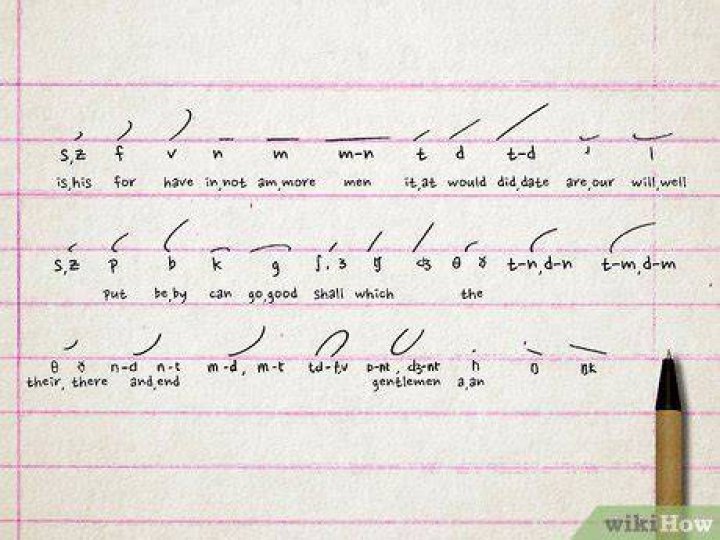 s,z f v n m m-n t d t-d r l
is,his for have in,not am,more men it,at would did,date are,our will,well
s,z p b k g ʃ, ʒ ʧ ʤ θ ð t-n,d-n t-m,d-m
put be,by can go,good shall which the
θ ð n-d n-t m-d, m-t td-f,v p-nt, ʤ-nt h ŋ ŋk
their, there and,end gentlemen a,an
wikiHow